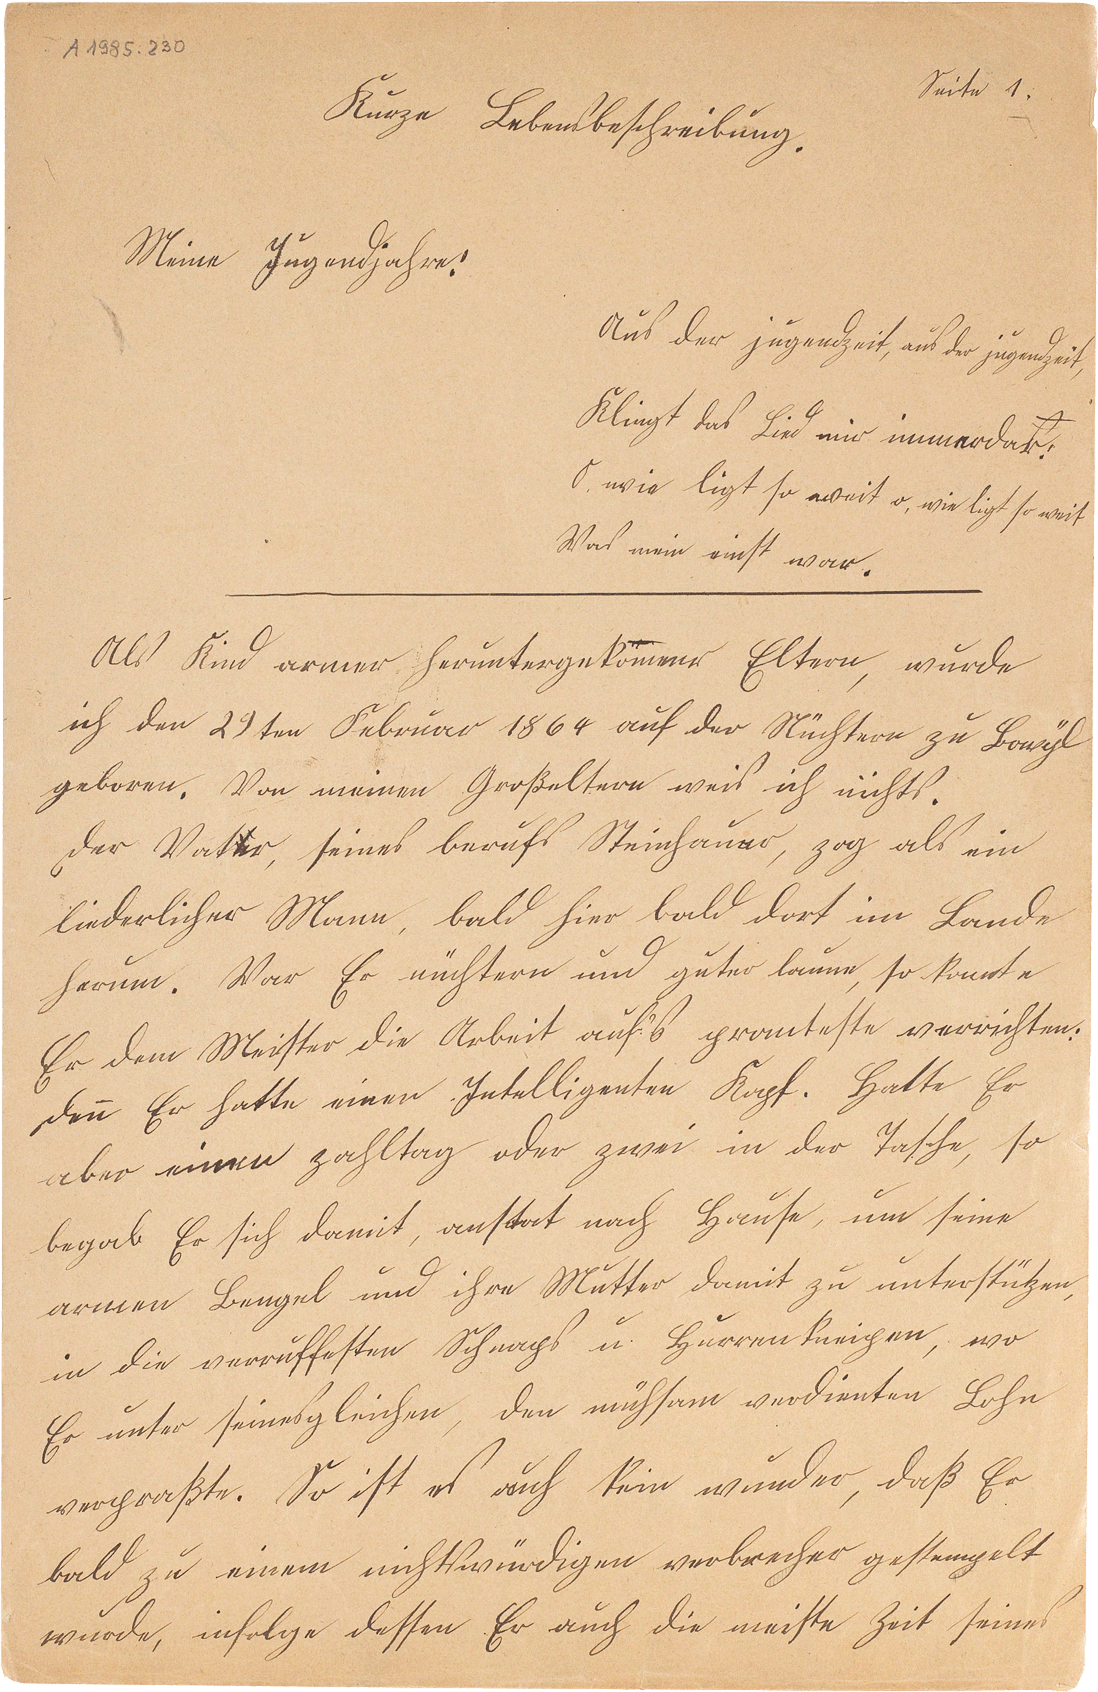 A 1985.230
Seite 1.
Kurze Lebensbeschreibung.
Meine Jugendjahre!
Aus der jugendzeit, aus der jugendzeit,
Klingt das Lied mir immerdar:
O, wie ligt so weit o, wie ligt so weit
Was mein einst war.
Als Kind armer heruntergekom̅ener Eltern, wurde
ich den 29ten Februar 1864 auf der Nüchtern zu Bowÿl
geboren. Von meinen Großeltern weis ich nichts.
Der Vatter, seines berufs Steinhauer, zog als ein
liederlicher Mann, bald hier bald dort im Lande
herum. War Er nüchtern und guter laune, so konnte
Er dem Meister die Arbeit auf's promteste verrichten:
den̅ Er hatte einen Intelligenten Kopf. Hatte Er
aber einen zahltag oder zwei in der Tasche, so
begab Er sich damit, anstat nach Hause, um seine
armen Bengel und ihre Mutter damit zu unterstützen,
in die verruffesten Schnaps u. Hurrenkneipen, wo
Er unter seinesgleichen, den mühsam verdienten Lohn
verpraßte. So ist es auch kein wunder, daß Er
bald zu einem nichtswürdigen verbrecher gestempelt
wurde, infolge dessen Er auch die meiste Zeit seines